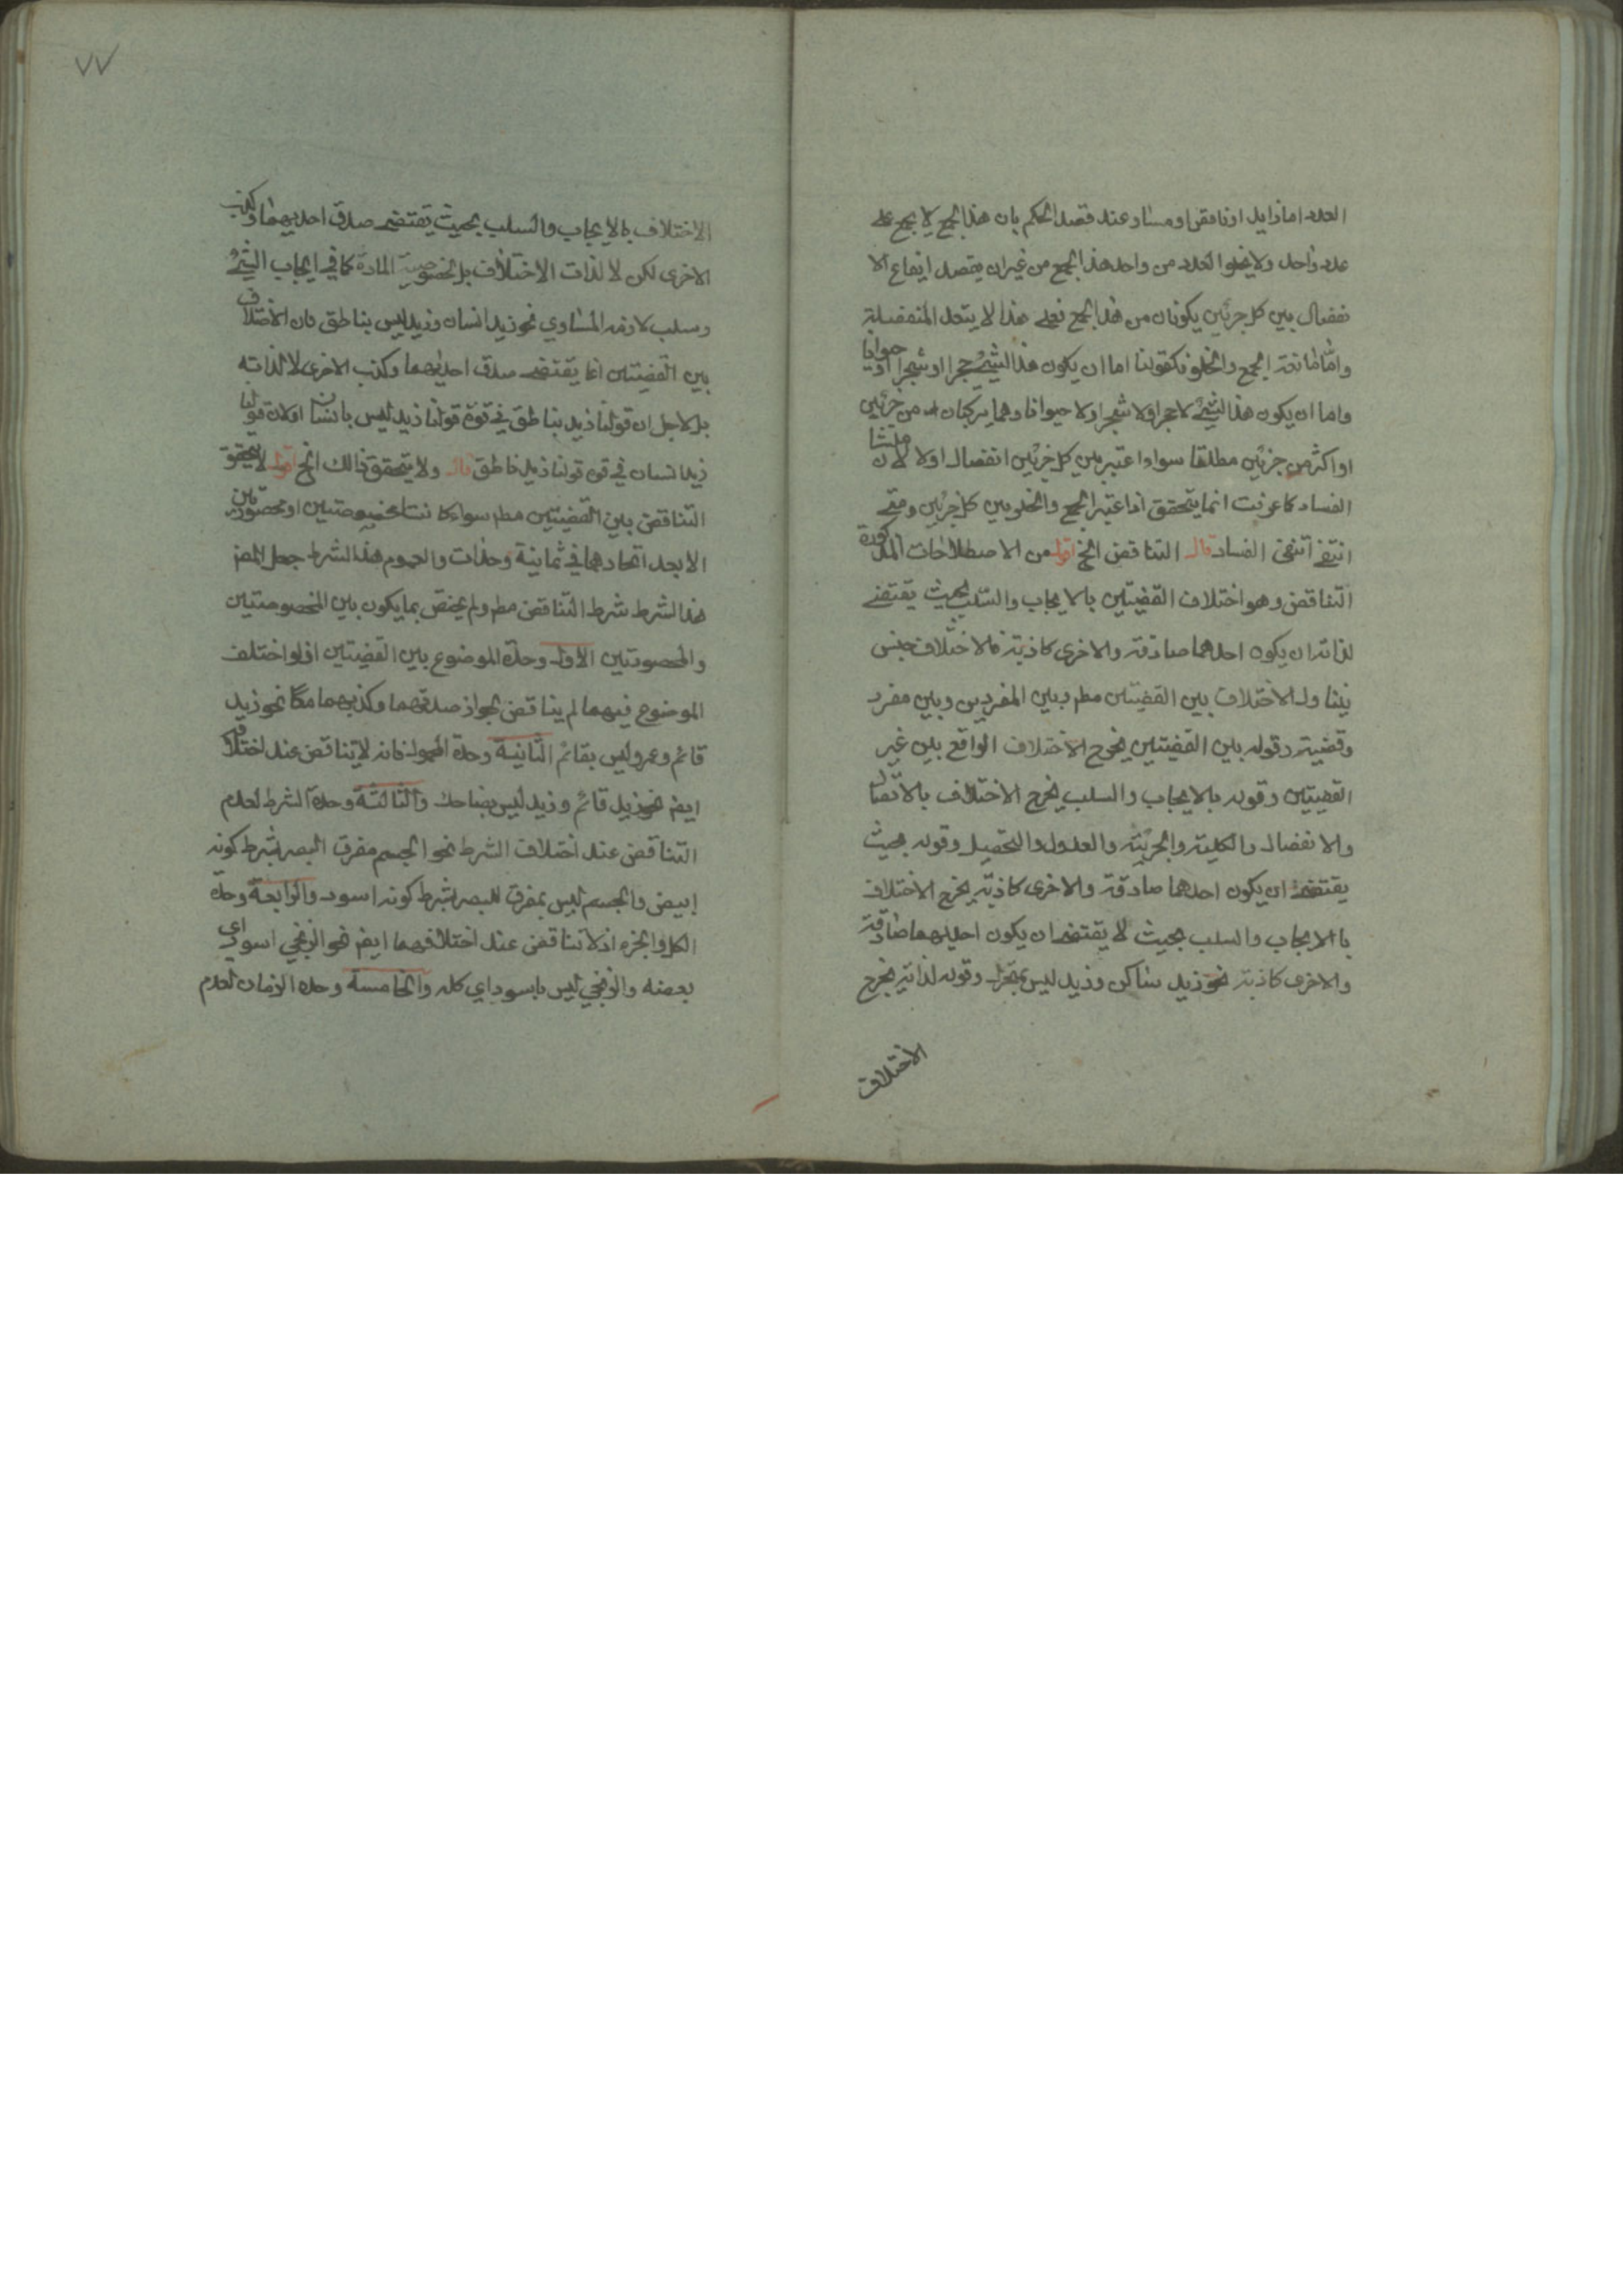 العدد اما زايد او ناقص او مساو عند قصد الحكم بان هذا الجمع لا يجمع على
عدد واحد ولا يخلو العدد من واحد هذا الجمع من غير ان يقصد ايقاع الا
نفصال بين كل جزئين يكونان من هذا الجمع فعلى هذا لا يتعدد المنفصلة
واما مانعة الجمع والخلو فكقولنا اما ان يكون هذا الشئ حجرا او شجرا او حيوانا
واما ان يكون هذا الشئ لا حجرا ولا شجرا ولا حيوانا وهما يتركبان من جزئين
او اكثر من جزئين مطلقا سواء اعتبر بين كل جزئين انفصال اولا لان منشا
الفساد كما عرفت انما يتحقق اذا اعتبر الجمع والخلو بين كل جزئين ومتى
انتفى انتفى الفساد قال التناقض الخ اقول من الاصطلاحات المذكورة
التناقض وهو اختلاف القضيتين بالايجاب والسلب بحيث يقتضى
لذاته ان يكون احدهما صادقة والاخرى كاذبة فالاختلاف جنس
يتناول الاختلاف بين القضيتين مطم وبين المفردين وبين مفرد
وقضية وقوله بين القضيتين يخرج الاختلاف الواقع بين غير
القضيتين وقوله بالايجاب والسلب يخرج الاختلاف بالاتصال
والانفصال والكلية والجزئية والعدول والتحصيل وقوله بحيث
يقتضى ان يكون احدهما صادقة والاخرى كاذبة يخرج الاختلاف
بالايجاب والسلب بحيث لا يقتضى ان يكون احديهما صادقة
والاخرى كاذبة نحو زيد ساكن وزيد ليس بمتحرك وقوله لذاته يخرج
الاختلاف
٧٧
الاختلاف بالايجاب والسلب بحيث يقتضى صدق احديهما وكذب
الاخرى لكن لا لذات الاختلاف بل لخصوصية المادة كما في ايجاب الشئ
وسلب لازمه المساوي نحو زيد انسان وزيد ليس بناطق فان الاختلاف
بين القضيتين انما يقتضى صدق احديهما وكذب الاخرى لا لذاته
بل لاجل ان قولنا زيد بناطق في قوة قولنا زيد ليس بانسان او لان قولنا
زيد انسان في قوة قولنا زيد ناطق قال ولا يتحقق ذالك الخ اقول لا يتحقق
التناقض بين القضيتين مطم سواء كانتا مخصوصتين او محصورتين
الا بعد اتحادهما في ثمانية وحدات والعموم هذا الشرط جعل المص
هذا الشرط شرط التناقض مطم ولم يختص بما يكون بين المخصوصتين
والمحصورتين الاول وحدة الموضوع بين القضيتين اذ لو اختلف
الموضوع فيهما لم يتناقض لجواز صدقهما وكذبهما معا نحو زيد
قائم وعمرو ليس بقائم الثانية وحدة المحمول فانه لا يتناقض عند اختلافه
ايض نحو زيد قائم وزيد ليس بضاحك والثالثة وحدة الشرط لعدم
التناقض عند اختلاف الشرط نحو الجسم مفرق البصر بشرط كونه
ابيض والجسم ليس بمفرق للبصر بشرط كونه اسود والرابعة وحدة
الكل والجزء اذ لا تناقض عند اختلافهما ايض نحو الزنجي اسود اي
بعضه والزنجي ليس باسود اي كله والخامسة وحدة الزمان لعدم